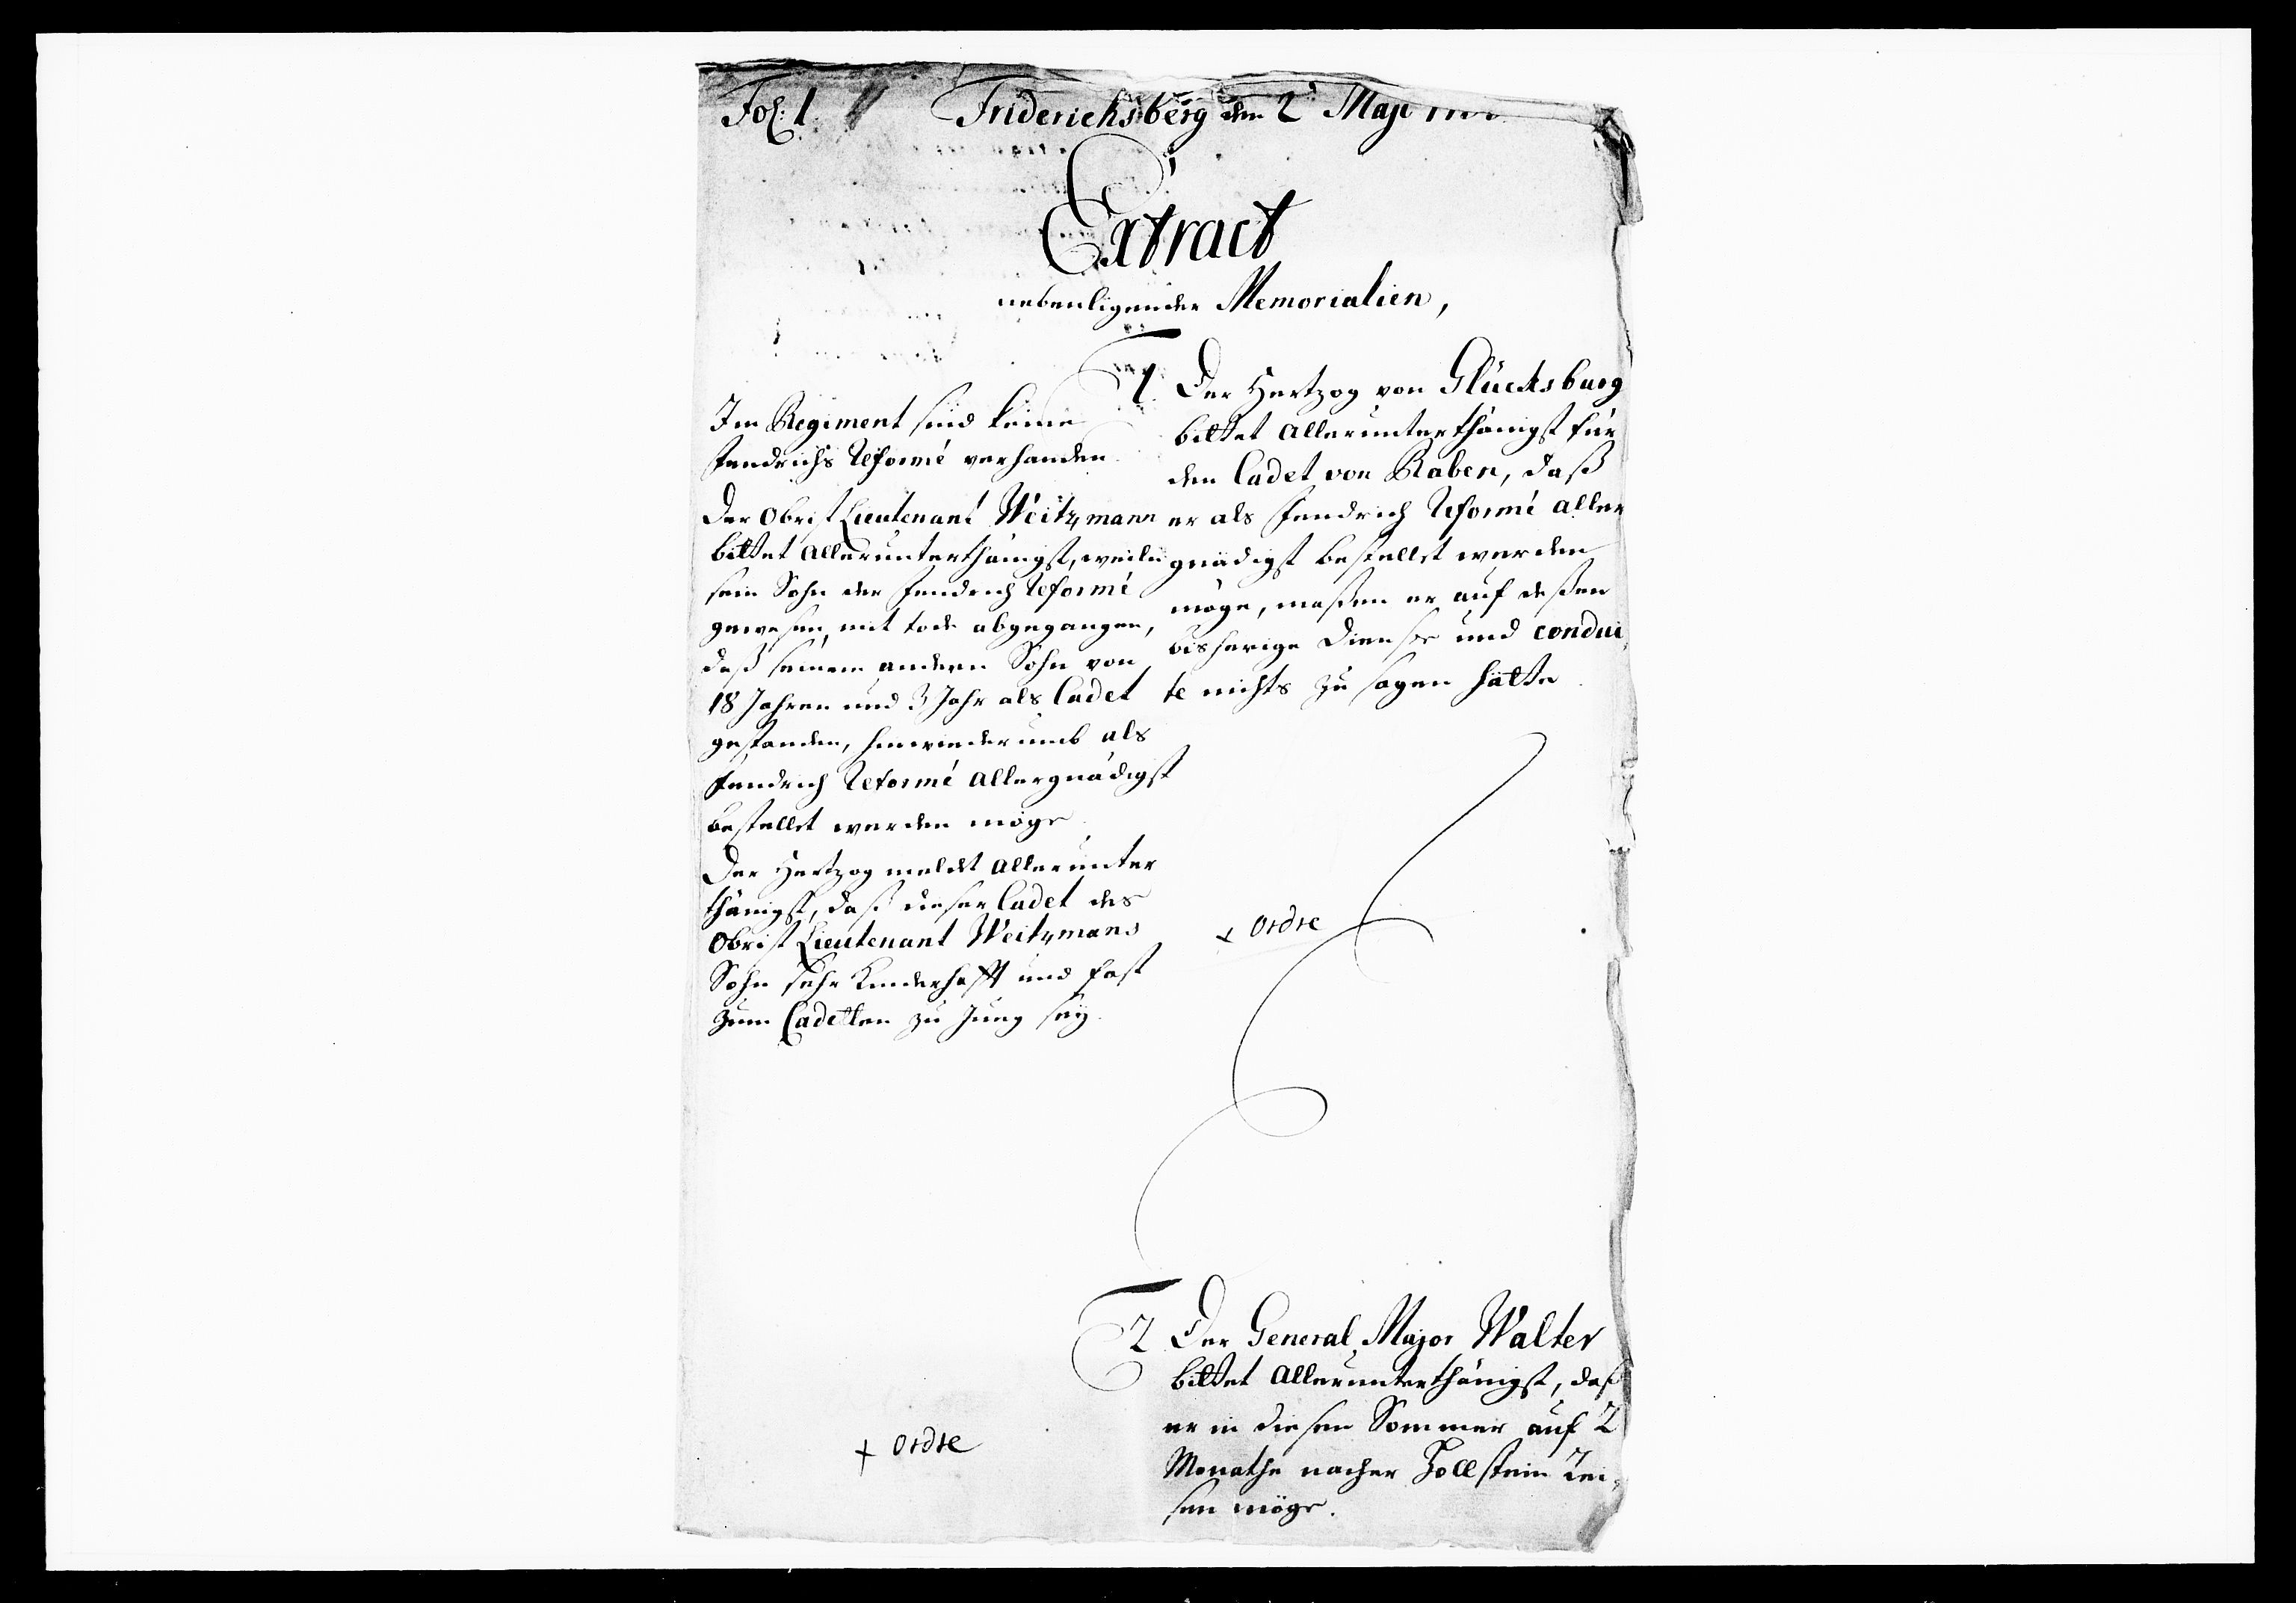 Fol: 1.
Friderichsberg den 2t Maji
Extract
nebenligender Memorialien,
Im Regiment sind keine
Fendrichs Reformé verhanden.
Der Obrist Lieutenant Weitzmann
bittet allerunterthänigst, weiln
sein Sohn der Fendrich Reformé
gewesen, mit tode abgegangen,
daß seinem andern Sohn von
18 Jahren und 3 Jahr als Cadet
gestanden, hinwiederumb als
Fendrich Reformé allergnädigst
bestellet werden möge.
Der Hertzog meldet allerunter
thänigst, daß dieser Cadet des
Obrist Lieutenant Weitzmans
Sohn sehr Kinderhafft und fast
zum Cadetten zu Jung seÿ.
1. Der Hertzog von Glücksburg
bittet allerunterthänigst für
den Cadet von Raben, daß
er als Fendrich Reformé aller
gnädigst bestellet werden
möge, maßen er auf deßen
bisherige Dienste und condui,
te nichts zu sagen hätte.
+ ordre
2. Der General Major Walter
bittet allerunterthänigst, daß
er in diesen Sommer auf 2
Monathe nacher Hollstein Rei,
sen möge.
+ ordre